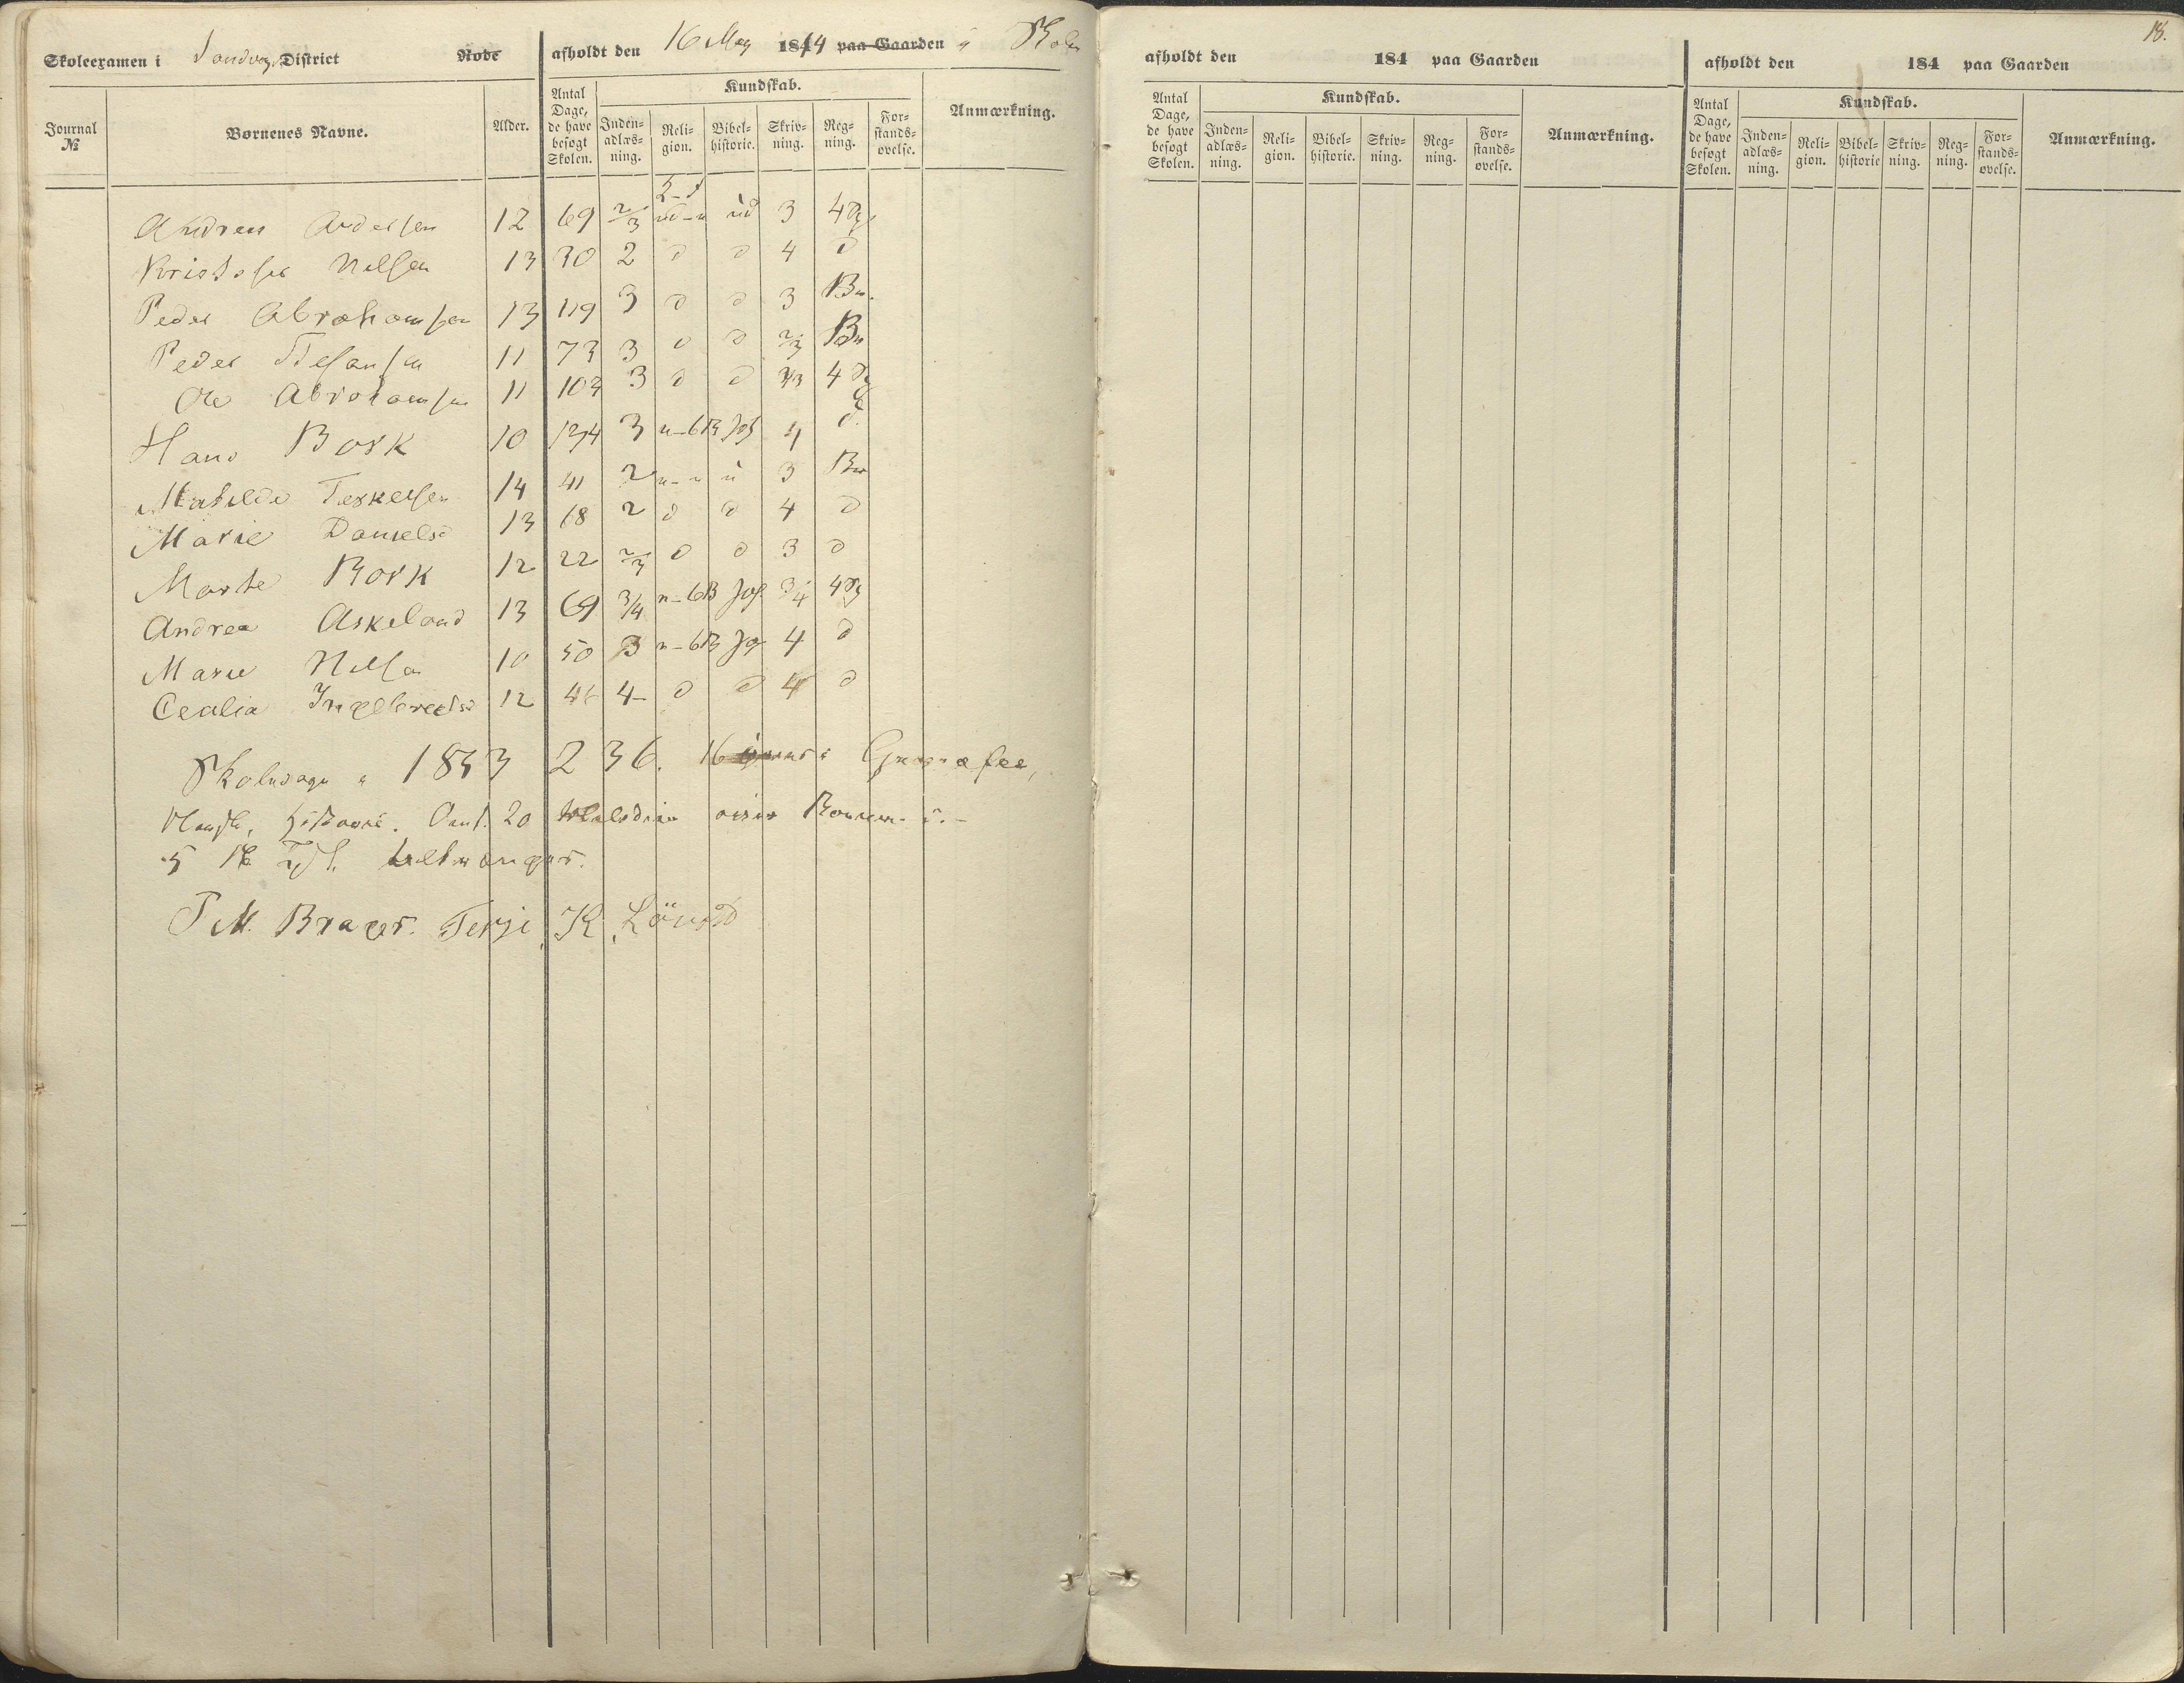 Skoleexamen i Sandvig District Rode afholdt den 16 May 184 4 paa Gaarden i Skolen
Journal № Børnenes Navne. Alder. Antal Dage, de have besøgt Skolen. Kundskab. Anmærkning.
Inden-adlæs-ning. Reli-gion. Bibel-historie. Skriv-ning. Reg-ning. For-stands-øvelse.
Andreas Andersen 12 69 2/3 ud-u ud 3 4
Kristofer Nilsen 13 30 2 d d 4 d
Peder Abrahamsen 13 119 3 d d 3 Br.
Peder Stefansen 11 73 3 d d 2/3 Br
Ole Abrahamsen 11 103 3 d d 3/3 4
Hans Bork 10 134 3 u-6B Jos 4 d.
Mathilde Terkelsen 14 41 2 u-u u 3 Br
Marie Danielsd 13 68 2 d d 4 d
Marte Bork 12 22 2/3 d d 3 d
Andrea Askeland 13 69 3/4 u-6B Jos. 3/4 4
Marie Nilsen 10 50 3 u-6B Jos 4 d
Cecilia Ingelbretsd 12 46 4- d d 4 d
Skoledage i 1853 236. 16
20
5
T M. Brager. Terje K. Lövold
afholdt den 184 paa Gaarden
Antal Dage, de have besøgt Skolen. Kundskab. Anmærkning.
Inden-adlæs-ning. Reli-gion. Bibel-historie. Skriv-ning. Reg-ning. For-stands-øvelse.
18.
afholdt den 184 paa Gaarden
Antal Dage, de have besøgt Skolen. Kundskab. Anmærkning.
Inden-adlæs-ning. Reli-gion. Bibel-historie Skriv-ning. Reg-ning. For-stands-øvelse.